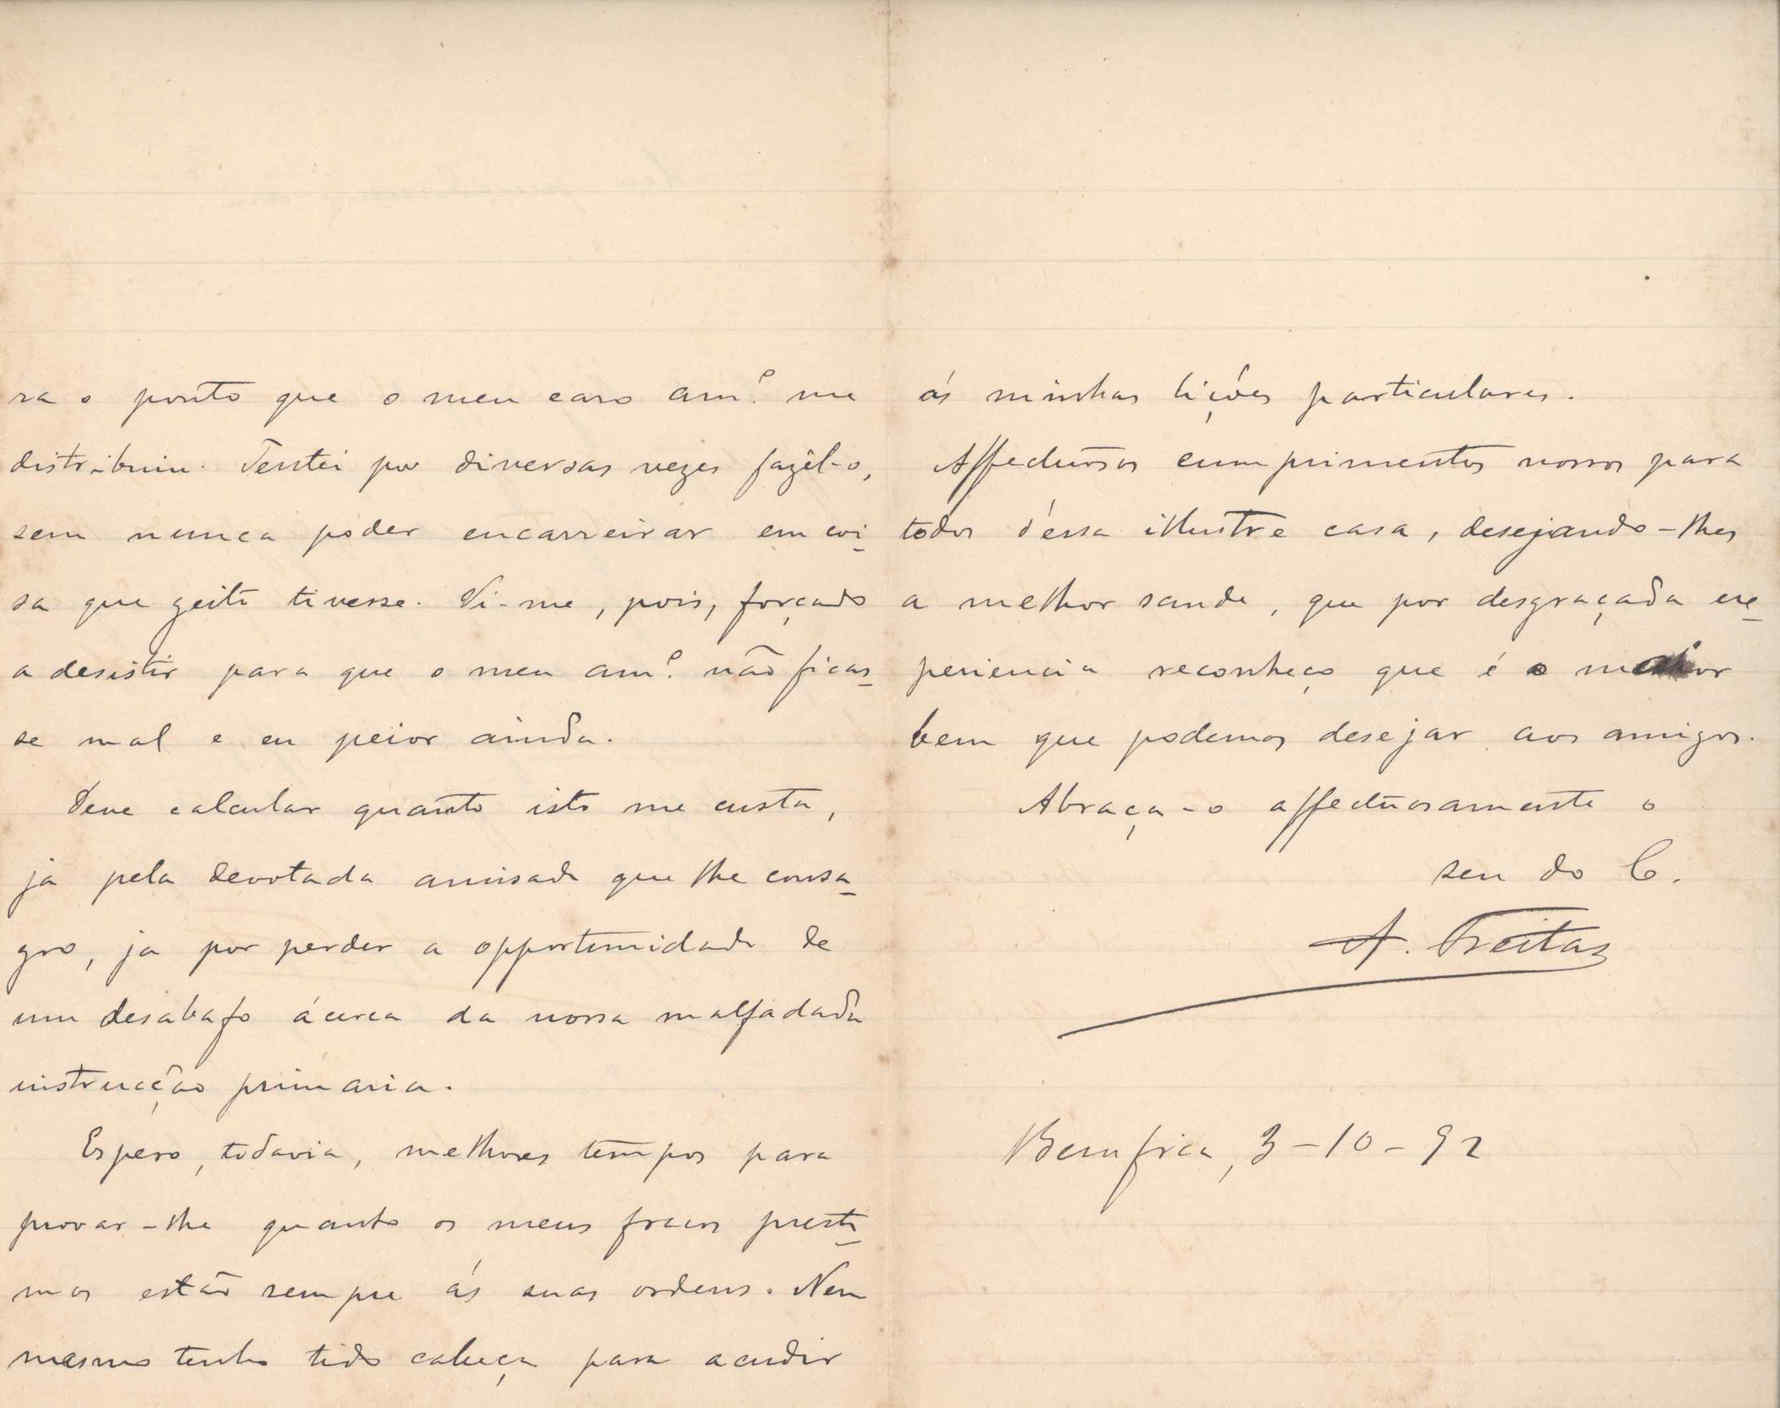 ra o ponto que o meu caro am.º me
distribuiu. Tentei por diversas vezes fazêl-o,
sem nunca poder encarreirar em coi-
sa que geito tivesse. Vi-me, pois, forçado
a desistir para que o meu am.º não ficas-
se mal e eu peior ainda.
Deve calcular quanto isto me custa,
ja pela devotada amisade que lhe consa-
gro, ja por perder a opportunidade de
um desabafo ácerca da nossa malfadada
instrucção primaria.
Espero, todavia, melhores tempos para
provar-lhe quanto os meus fracos presti-
mos estão sempre ás suas ordens. Nem
mesmo tenho tido cabeça para acudir
ás minhas lições particulares.
Affectuosos cumprimentos nossos para
todos d'essa illustre casa, desejando-lhes
a melhor saude, que por desgraçada ex-
periencia reconheço que é o melhor
bem que podemos desejar aos amigos.
Abraça-o affectuosamente o
seu do C.
A. Freitas
Bemfica, 3-10-92